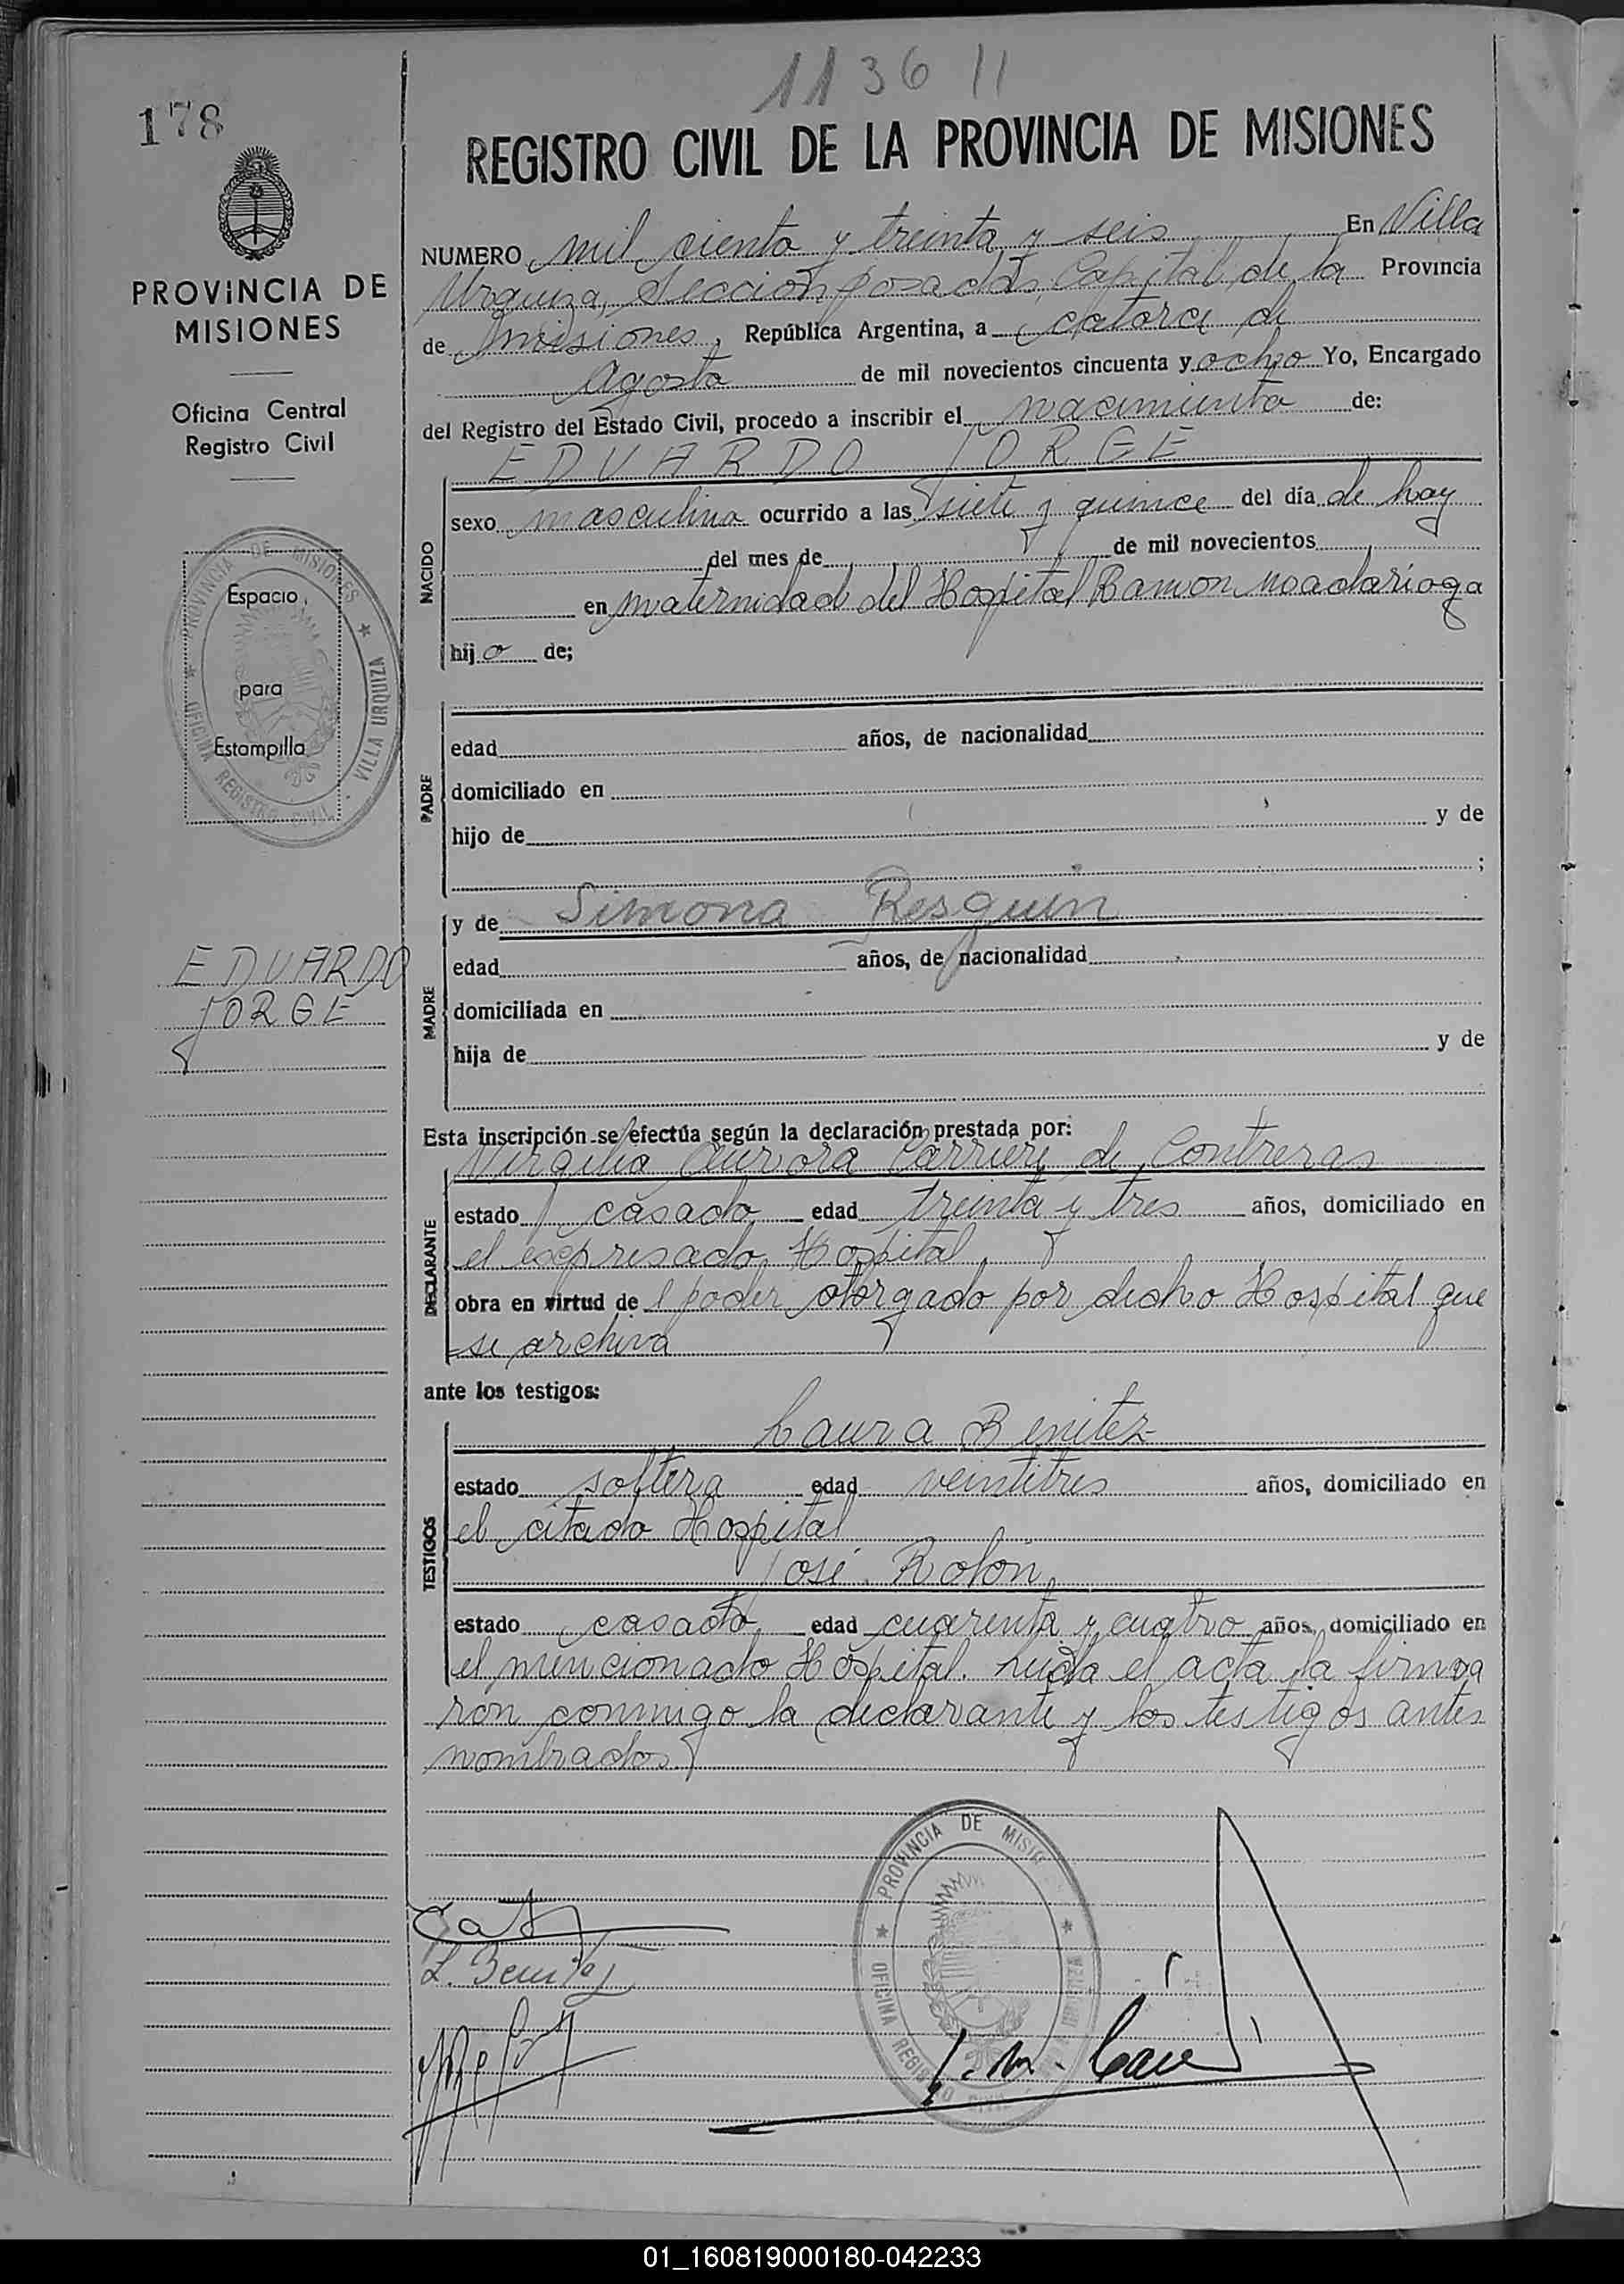 1136 11
178
REGISTRO CIVIL DE LA PROVINCIA DE MISIONES
PROVINCIA DE
MISIONES
Oficina Central
Registro Civil
NUMERO mil ciento y treinta y seis En Villa
Urquiza, Sección posadas, Capital de la Provincia
de misiones, República Argentina, a catorce de
Agosto de mil novecientos cincuenta y ocho Yo, Encargado
del Registro del Estado Civil, procedo a inscribir el nacimiento de:
EDUARDO JORGE
NACIDO
sexo masculino ocurrido a las siete y quince del día de hoy
del mes de de mil novecientos
en maternidad del Hospital Ramon Madariaga
hijo de;
PROVINCIA DE MISIONES
OFICINA REGISTRO CIVIL
VILLA URQUIZA
Espacio
para
Estampilla
PADRE
edad años, de nacionalidad
domiciliado en
hijo de y de
;
MADRE
y de Simona Resquin
edad años, de nacionalidad
domiciliada en
hija de y de
EDUARDO
JORGE
Esta inscripción se efectúa según la declaración prestada por:
DECLARANTE
Virgilia Aurora Carrieri de Contreras
estado casada edad treinta y tres años, domiciliado en
el expresado Hospital
obra en virtud de l poder otorgado por dicho Hospital que
se archiva
ante los testigos:
TESTIGOS
Laura Benitez
estado soltera edad veintitres años, domiciliado en
el citado Hospital
José Rolón
estado casado edad cuarenta y cuatro años, domiciliado en
el mencionado Hospital. Leida el acta la firma
ron conmigo la declarante y los testigos antes
nombrados
PROVINCIA DE MISIO
OFICINA REGISTRO CIVIL
L. Benitez